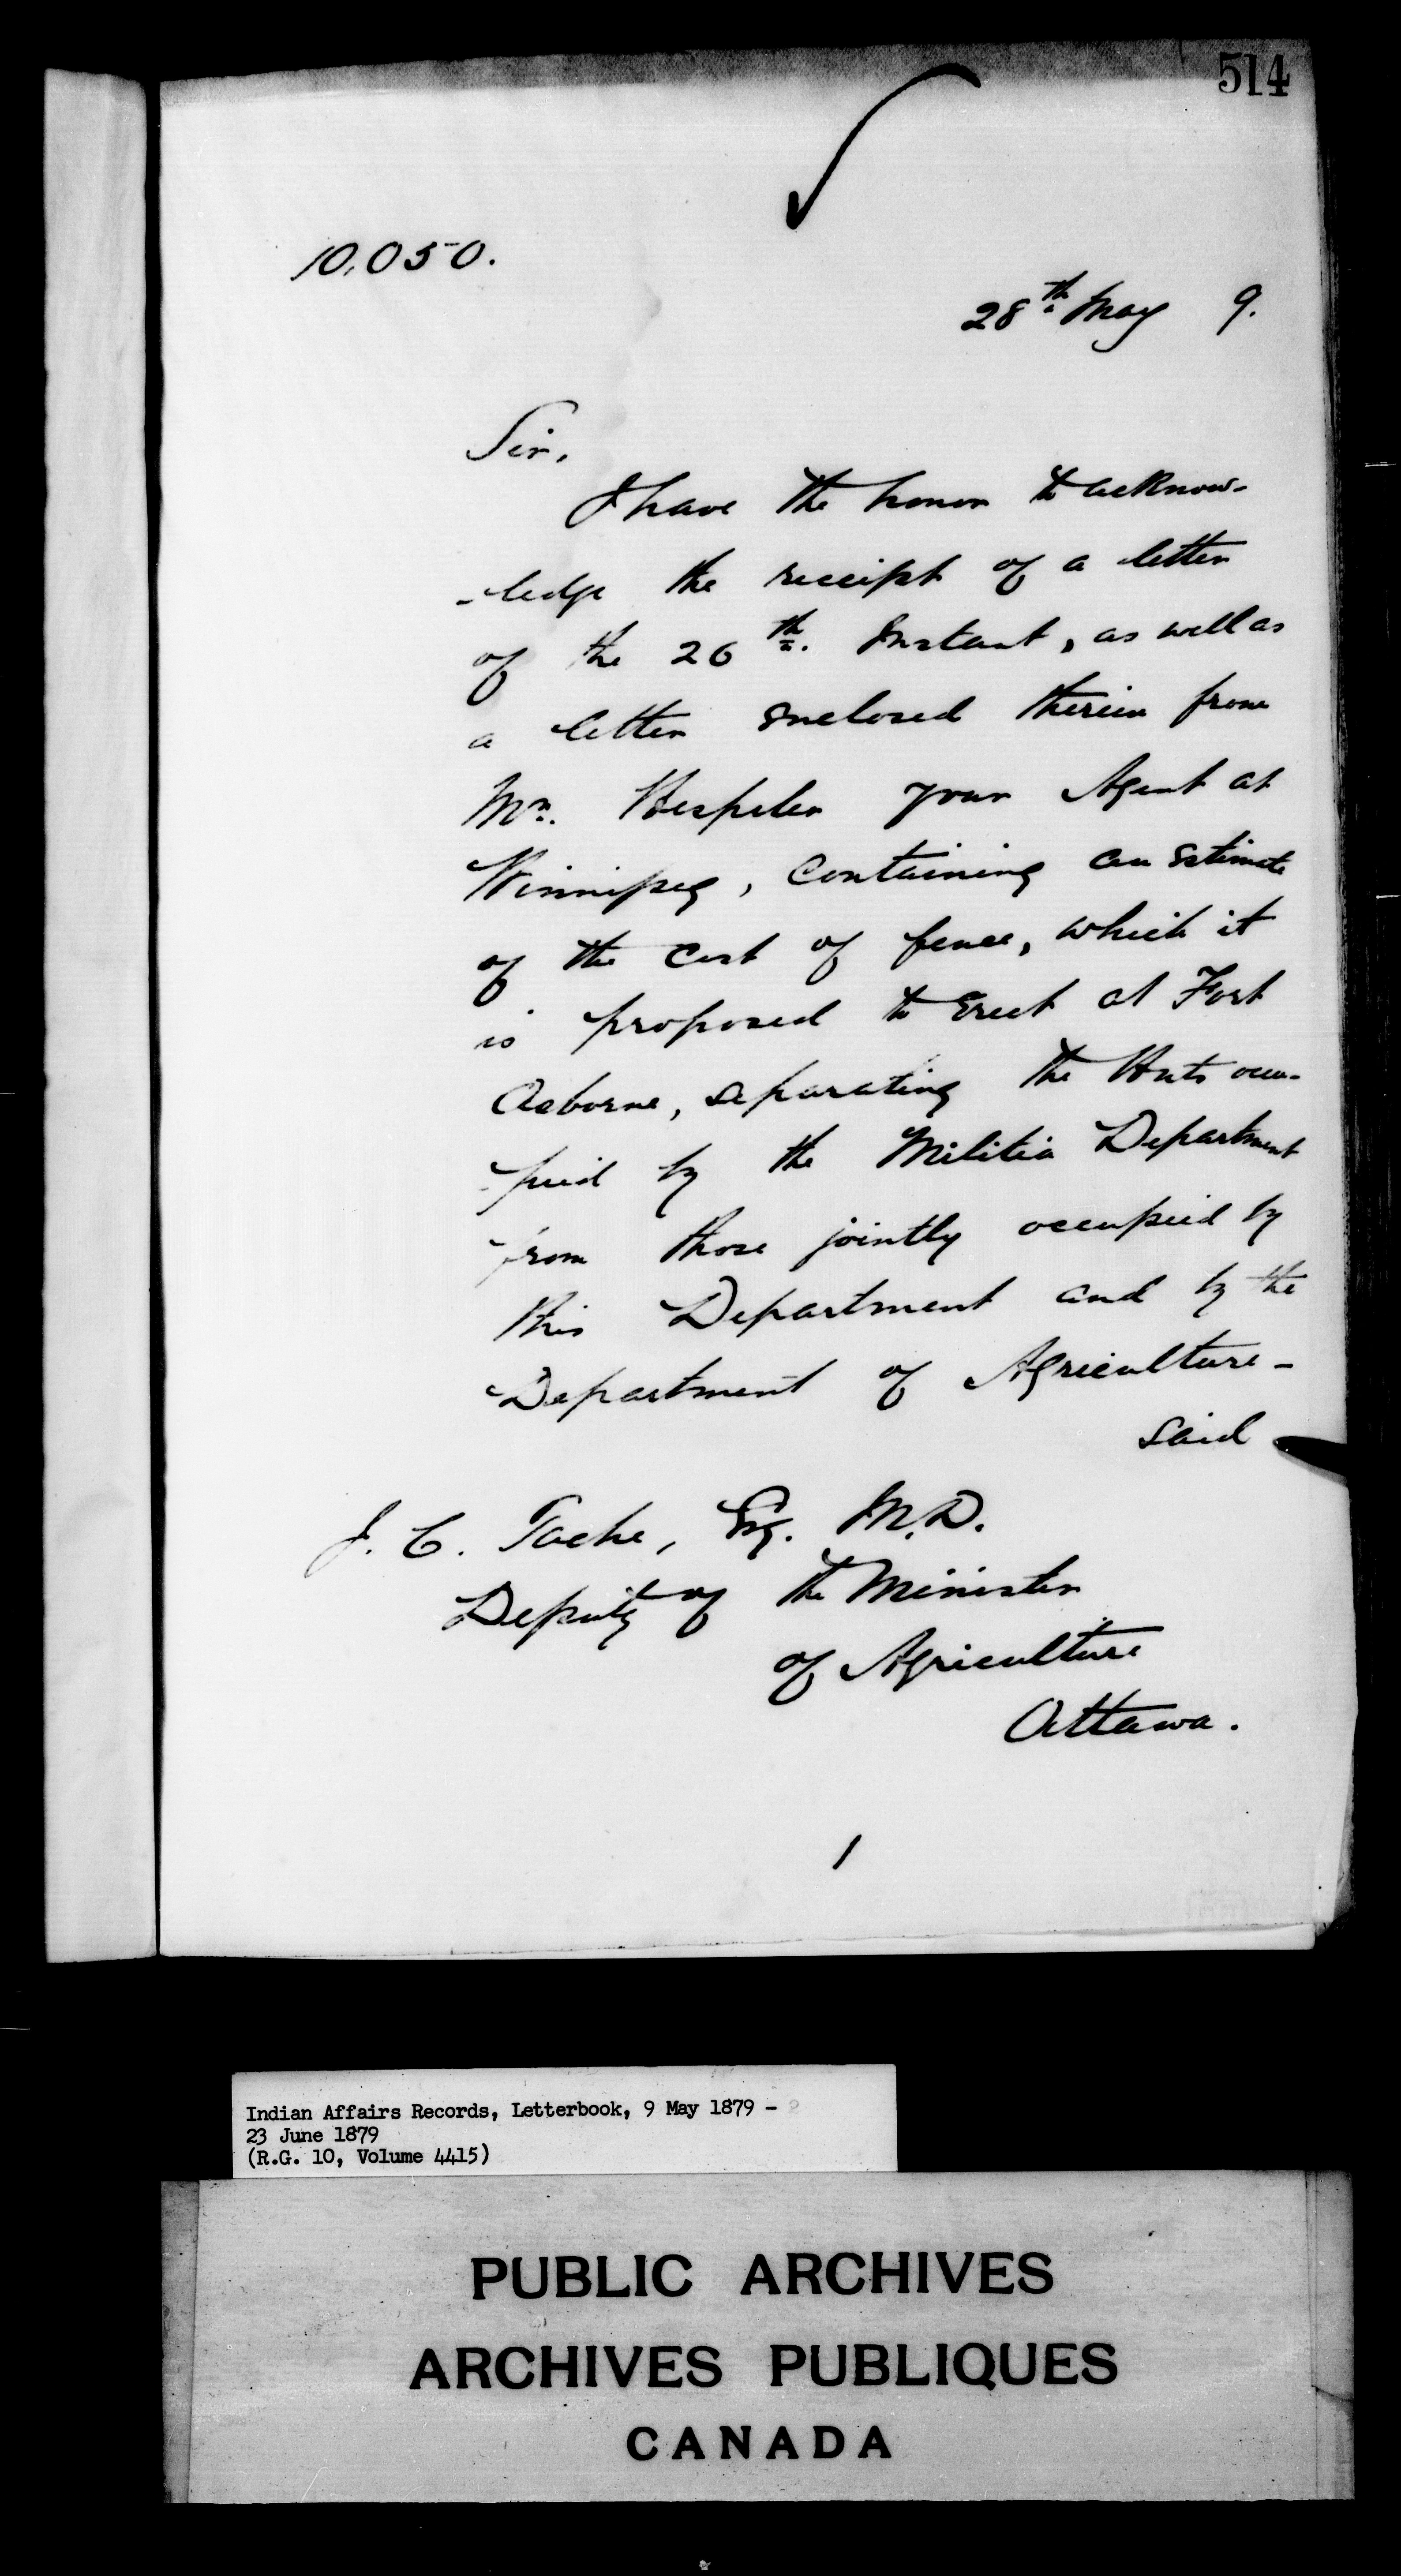 514
10,050.
28th May 9.
Sir,
I have the honor to acknow-
-ledge the receipt of a letter
of the 26th. Instant, as well as
a letter enclosed therein from
Mr. Hespeler your Agent at
Winnipeg, containing an estimate
of the cost of fence, which it
is proposed to erect at Fort
Osborne, separating the Huts occu-
-pied by the Militia Department
from those jointly occupied by
this Department and by the
Department of Agriculture -
said
J. C. Tache, Esq. M.D.
Deputy of the Minister
of Agriculture
Ottawa.
1
Indian Affairs Records, Letterbook, 9 May 1879 -
23 June 1879
(R.G. 10, Volume 4415)
PUBLIC ARCHIVES
ARCHIVES PUBLIQUES
CANADA